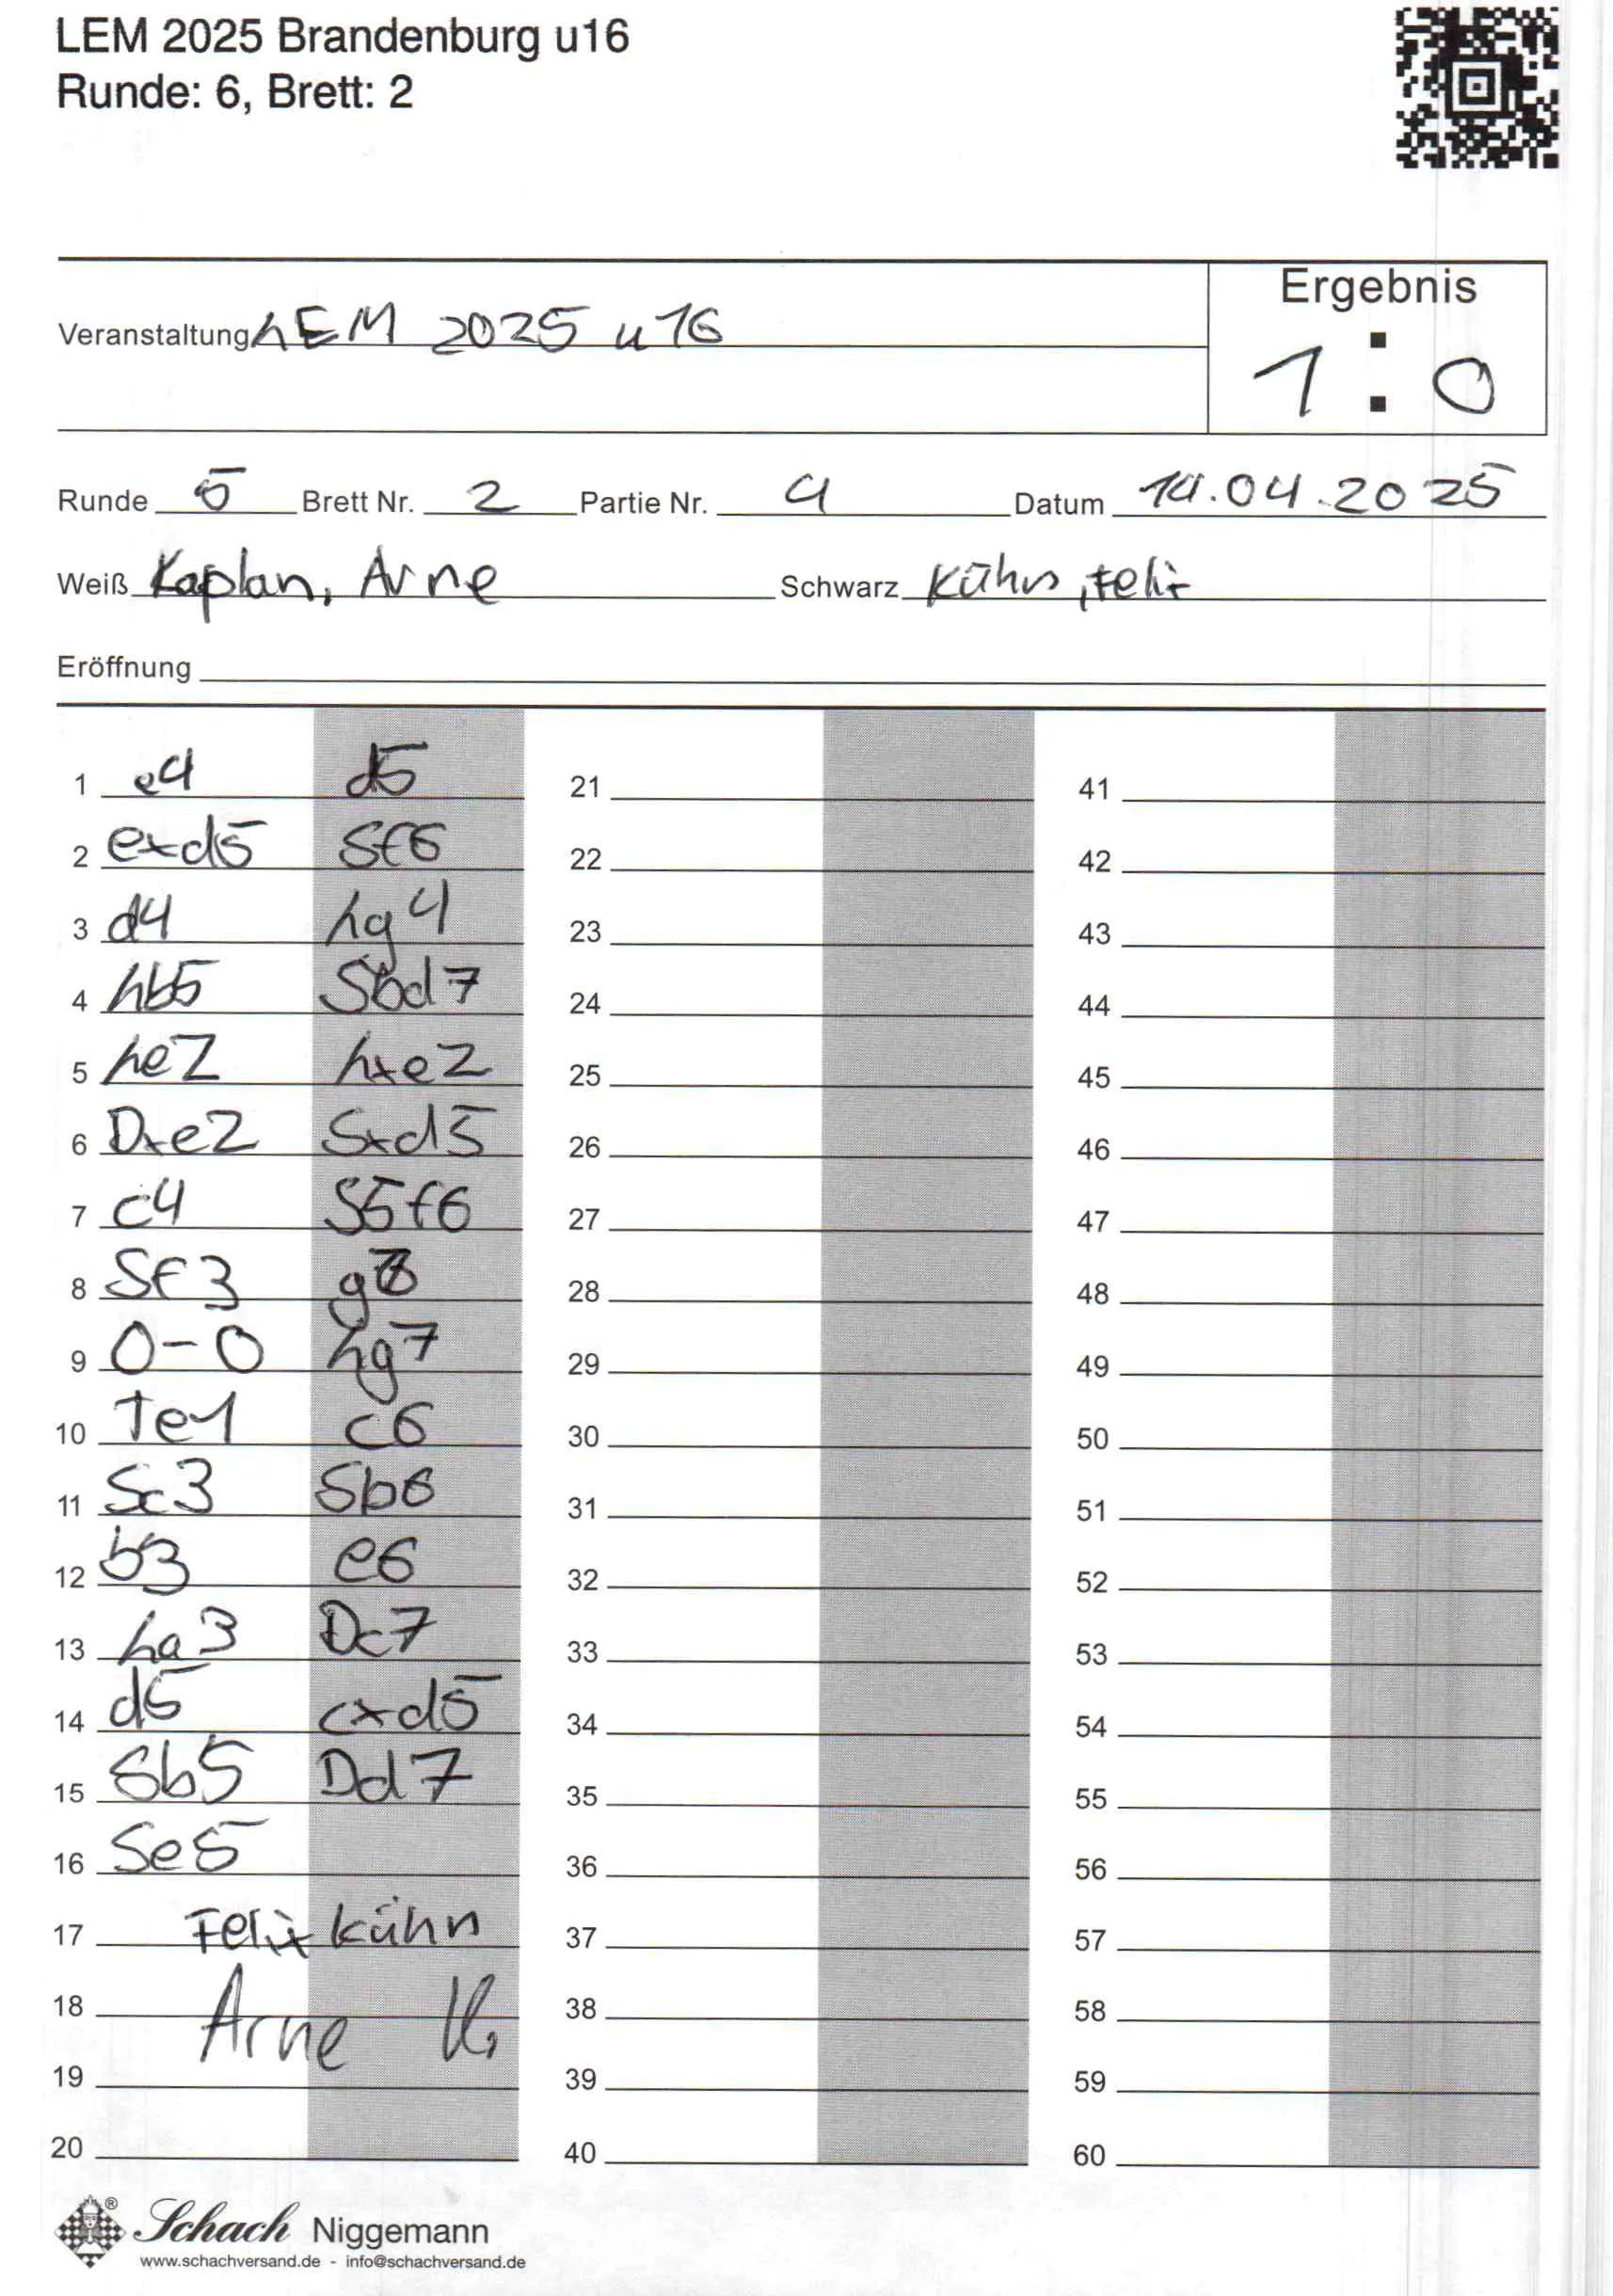 LEM 2025 Brandenburg u16
Runde: 6, Brett: 2
Ergebnis
Veranstaltung LEM 2025 u16
1 : 0
Runde 5 Brett Nr. 2 Partie Nr. 4 Datum 14.04.2025
Weiß Kaplan, Arne Schwarz Kühn, Felix
Eröffnung
1 e4 d5 21 41
2 exd5 Sf6 22 42
3 d4 Lg4 23 43
4 Lb5 Sbd7 24 44
5 Le2 Lxe2 25 45
6 Dxe2 Sxd5 26 46
7 c4 S5f6 27 47
8 Sf3 g6 28 48
9 0-0 Lg7 29 49
10 Te1 c6 30 50
11 Sc3 Sb6 31 51
12 b3 e6 32 52
13 La3 Dc7 33 53
14 d5 cxd5 34 54
15 Sb5 Dd7 35 55
16 Se5 36 56
17 Felix Kühn 37 57
18 Arne K. 38 58
19 39 59
20 40 60
Schach Niggemann
www.schachversand.de - info@schachversand.de